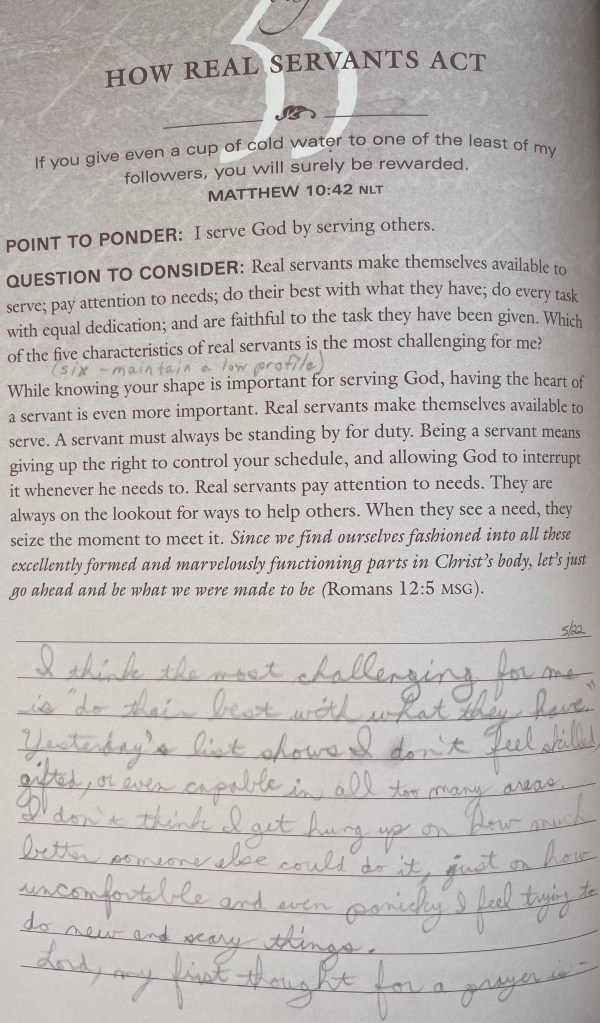 33
HOW REAL SERVANTS ACT
If you give even a cup of cold water to one of the least of my
followers, you will surely be rewarded.
MATTHEW 10:42 NLT
POINT TO PONDER: I serve God by serving others.
QUESTION TO CONSIDER: Real servants make themselves available to
serve; pay attention to needs; do their best with what they have; do every task
with equal dedication; and are faithful to the task they have been given. Which
of the five characteristics of real servants is the most challenging for me?
(six - maintain a low profile)
While knowing your shape is important for serving God, having the heart of
a servant is even more important. Real servants make themselves available to
serve. A servant must always be standing by for duty. Being a servant means
giving up the right to control your schedule, and allowing God to interrupt
it whenever he needs to. Real servants pay attention to needs. They are
always on the lookout for ways to help others. When they see a need, they
seize the moment to meet it. Since we find ourselves fashioned into all these
excellently formed and marvelously functioning parts in Christ's body, let's just
go ahead and be what we were made to be (Romans 12:5 MSG).
5/22
I think the most challenging for me
is "do their best with what they have."
Yesterday's list shows I don't feel skilled,
gifted, or even capable in all too many areas.
I don't think I get hung up on how much
better someone else could do it, just on how
uncomfortable and even panicky I feel trying to
do new and scary things.
Lord, my first thought for a prayer is -